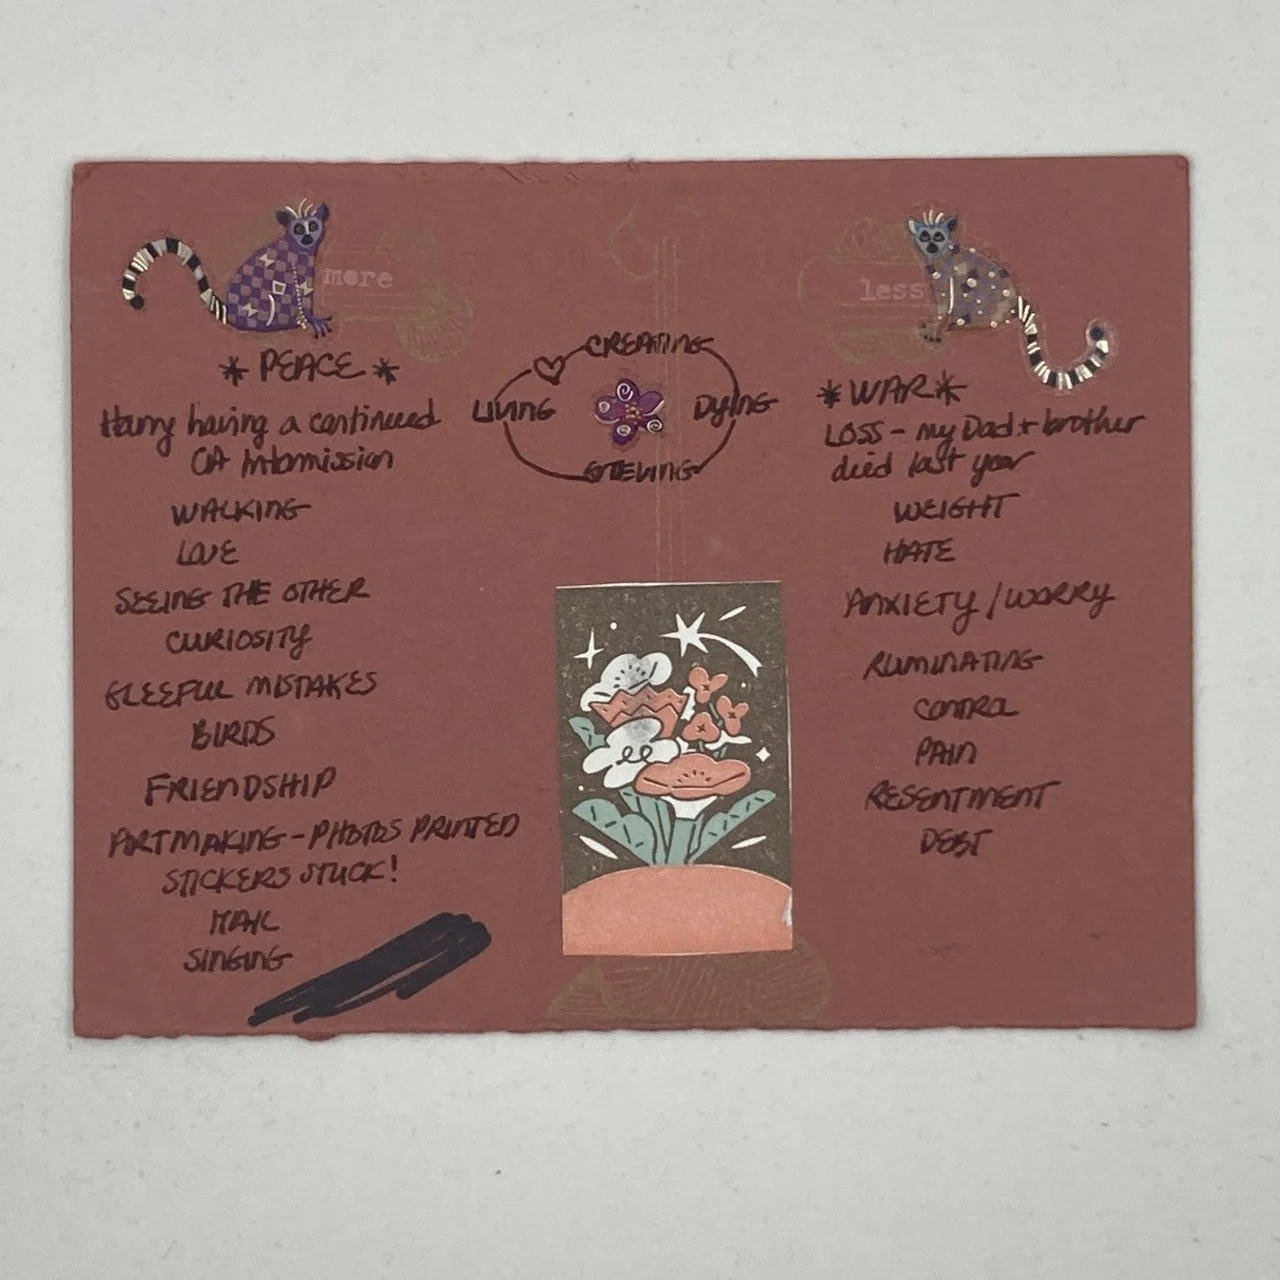 more
* PEACE *
Harry having a continued
CA Intermission
WALKING
LOVE
SEEING THE OTHER
CURIOSITY
GLEEFUL MISTAKES
BIRDS
FRIENDSHIP
ARTMAKING - PHOTOS PRINTED
STICKERS STUCK!
MAIL
SINGING
CREATING
LIVING
DYING
less
*WAR*
LOSS - my Dad + brother
died last year
WEIGHT
HATE
ANXIETY / WORRY
RUMINATING
CONTROL
PAIN
RESENTMENT
DEBT